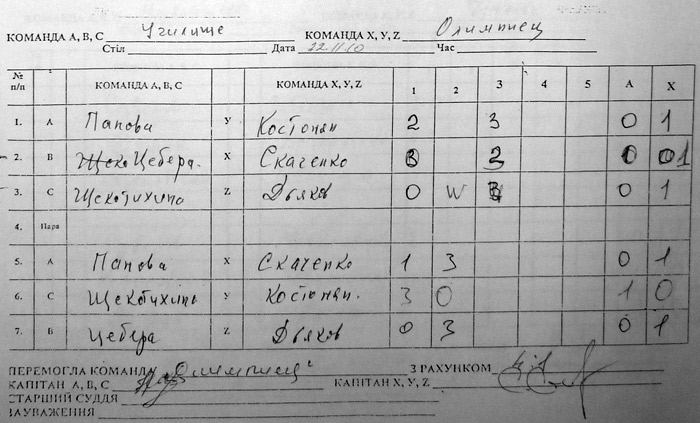 КОМАНДА А, В, С Училище КОМАНДА X, Y, Z Олимпиец
Стіл Дата 22.11.10 Час
№ п/п КОМАНДА А, В, С КОМАНДА X, Y, Z 1 2 3 4 5 А X
1. А Папова У Костопан 2 3 0 1
2. В Цебера. X Скаченко 3 2 0 1
3. С Щекотихина Z Дьяков 0 W 0 1
4. Пара
5. А Папова X Скаченко 1 3 0 1
6. С Щекотихина У Костопан. 3 0 1 0
7. В Цебера Z Дьяков 0 3 0 1
ПЕРЕМОГЛА КОМАНДА „Олимпиец" З РАХУНКОМ
КАПІТАН А, В, С КАПІТАН X, Y, Z
СТАРШИЙ СУДДЯ
ЗАУВАЖЕННЯ